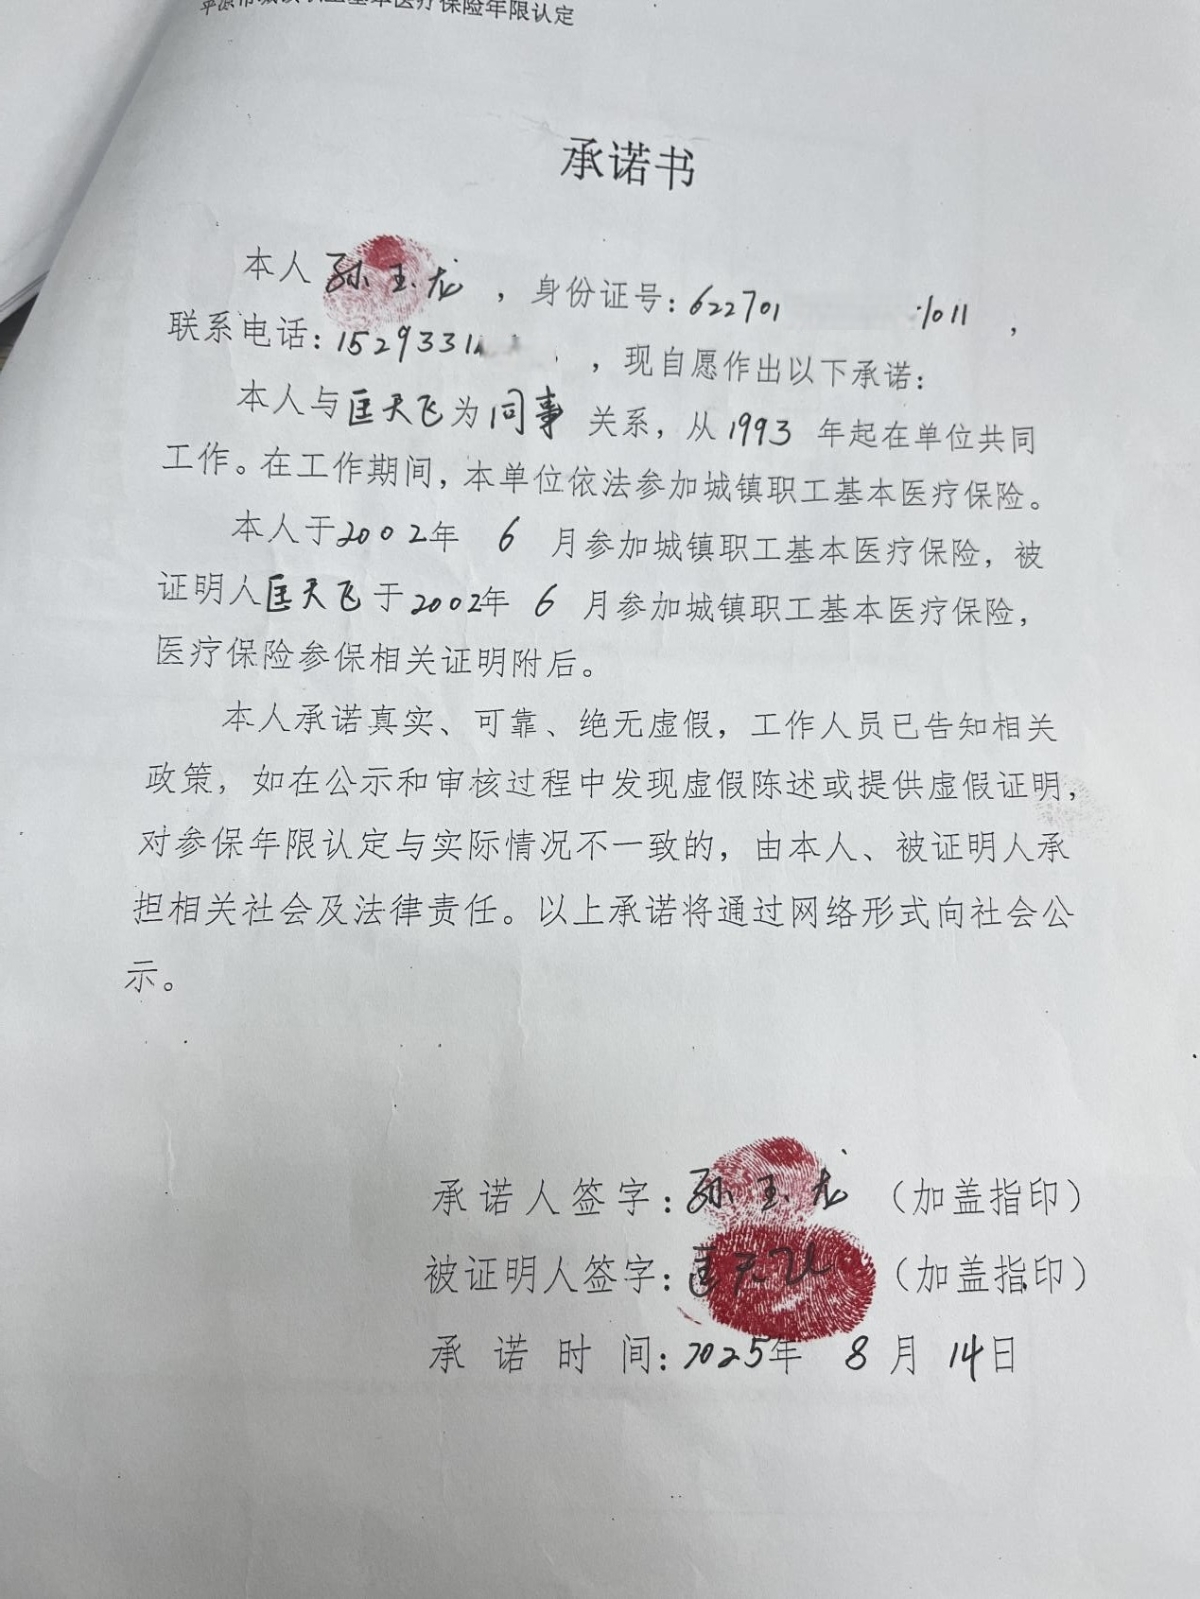 平凉市城镇职工基本医疗保险年限认定
承诺书
本人孙玉龙，身份证号：622701 1011，
联系电话：1529331，现自愿作出以下承诺：
本人与匡天飞为同事关系，从1993年起在单位共同
工作。在工作期间，本单位依法参加城镇职工基本医疗保险。
本人于2002年6月参加城镇职工基本医疗保险，被
证明人匡天飞于2002年6月参加城镇职工基本医疗保险，
医疗保险参保相关证明附后。
本人承诺真实、可靠、绝无虚假，工作人员已告知相关
政策，如在公示和审核过程中发现虚假陈述或提供虚假证明，
对参保年限认定与实际情况不一致的，由本人、被证明人承
担相关社会及法律责任。以上承诺将通过网络形式向社会公
示。
承诺人签字：孙玉龙（加盖指印）
被证明人签字：匡天飞（加盖指印）
承诺时间：2025年8月14日